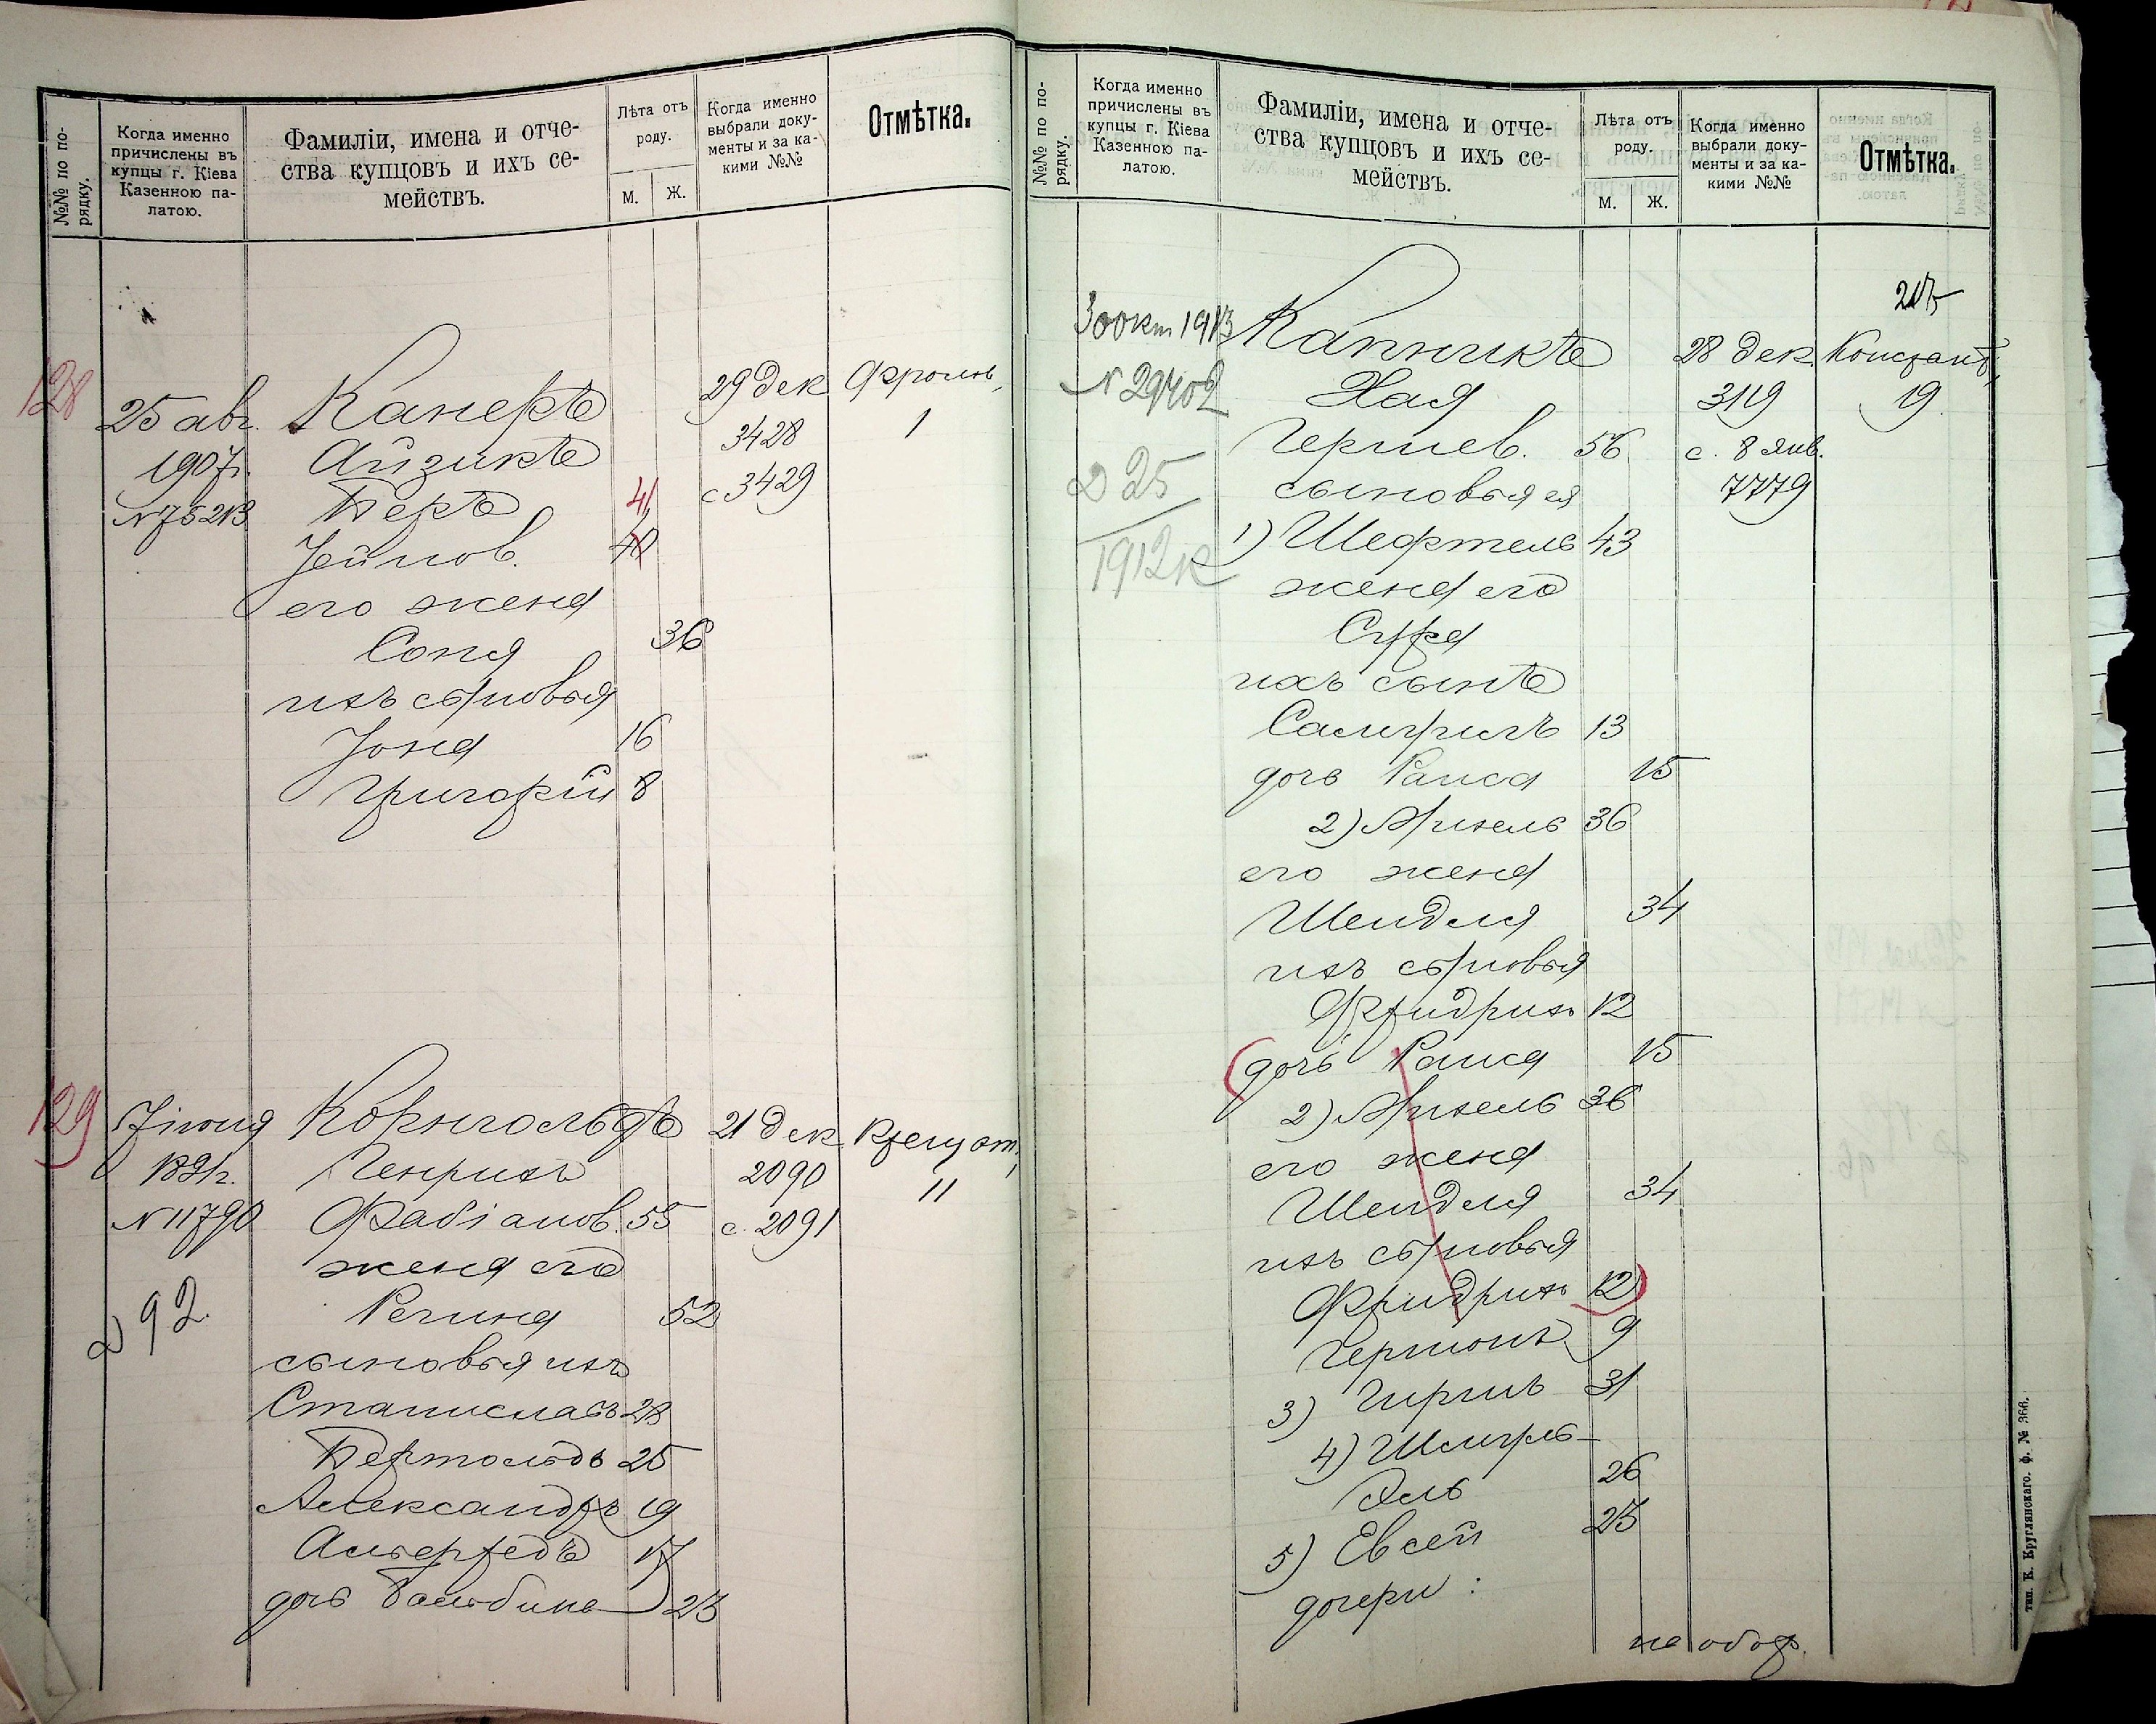 №№ по по-
рядку.
Когда именно
причислены въ
купцы г. Кіева
Казенною па-
латою.
Фамиліи, имена и отче-
ства купцовъ и ихъ се-
мействъ.
Лѣта отъ
роду.
М. Ж.
Когда именно
выбрали доку-
менты и за ка-
кими №№
Отмѣтка.
128
25 авг.
1907г.
№75213
Канеръ
Айзикъ
Беръ 41
Іейнов. 40
его жена
Соня 36
ихъ сыновья
Іона 16
Григорій 8
29 дек
3428
с 3429
Фролов.
1
129
7 іюня
189 г.
№11790
д 92.
Корнгольдъ
Генрихъ
Фабіанов. 55
жена его
Регина 52
сыновья ихъ
Станиславъ 28
Бертольдъ 25
Александръ 19
Альфредъ 17
дочь Бальбина 23
21 дек
2090
с. 2091
Крещат.
11
№№ по по-
рядку.
Когда именно
причислены въ
купцы г. Кіева
Казенною па-
латою.
Фамиліи, имена и отче-
ства купцовъ и ихъ се-
мействъ.
Лѣта отъ
роду.
М. Ж.
Когда именно
выбрали доку-
менты и за ка-
кими №№
Отмѣтка.
30 окт 1913
№ 29402
д 25
1912 к
Капникъ
Хая
Гершев. 56
сыновья ея
1) Шефтель 43
жена его
Сура
ихъ сынъ
Самуилъ 13
дочь Раиса 15
2) Михель 36
его жена
Шендля 34
ихъ сыновья
Фридрихъ 12
(дочь Раиса 15
2) Михель 36
его жена
Шендля 34
ихъ сыновья
Фридрихъ 12)
Германъ 9
3) Гиршъ 31
4) Шмуль-
Эль 26
5) Евсей 23
дочери:
на обор.
28 дек.
3119
с. 8 янв.
7779
Констант.
19
тип. К. Круглянскаго. ф. № 366.